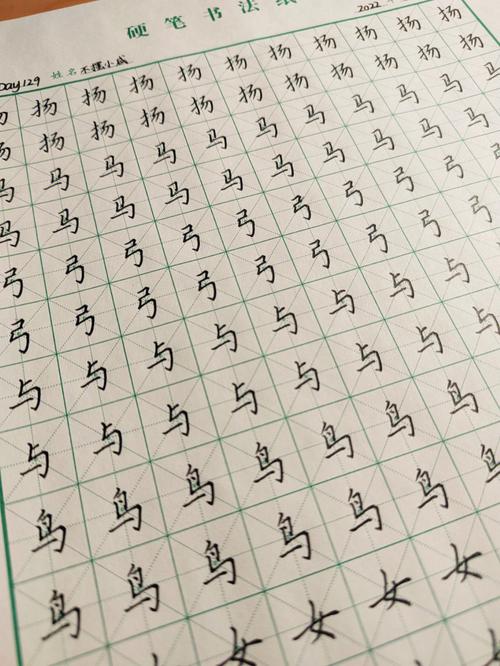 硬笔书法纸
2022
Day129 姓名
扬扬扬扬扬扬扬扬扬扬扬
扬扬扬扬扬扬扬扬扬扬
马马马马马马马马马马马
马马马马马马马马马马
弓弓弓弓弓弓弓弓弓弓
弓弓弓弓弓弓弓弓弓
与与与与与与与与
与与与与与与与与
鸟鸟鸟鸟鸟鸟鸟
鸟鸟鸟鸟鸟鸟鸟
女女女女